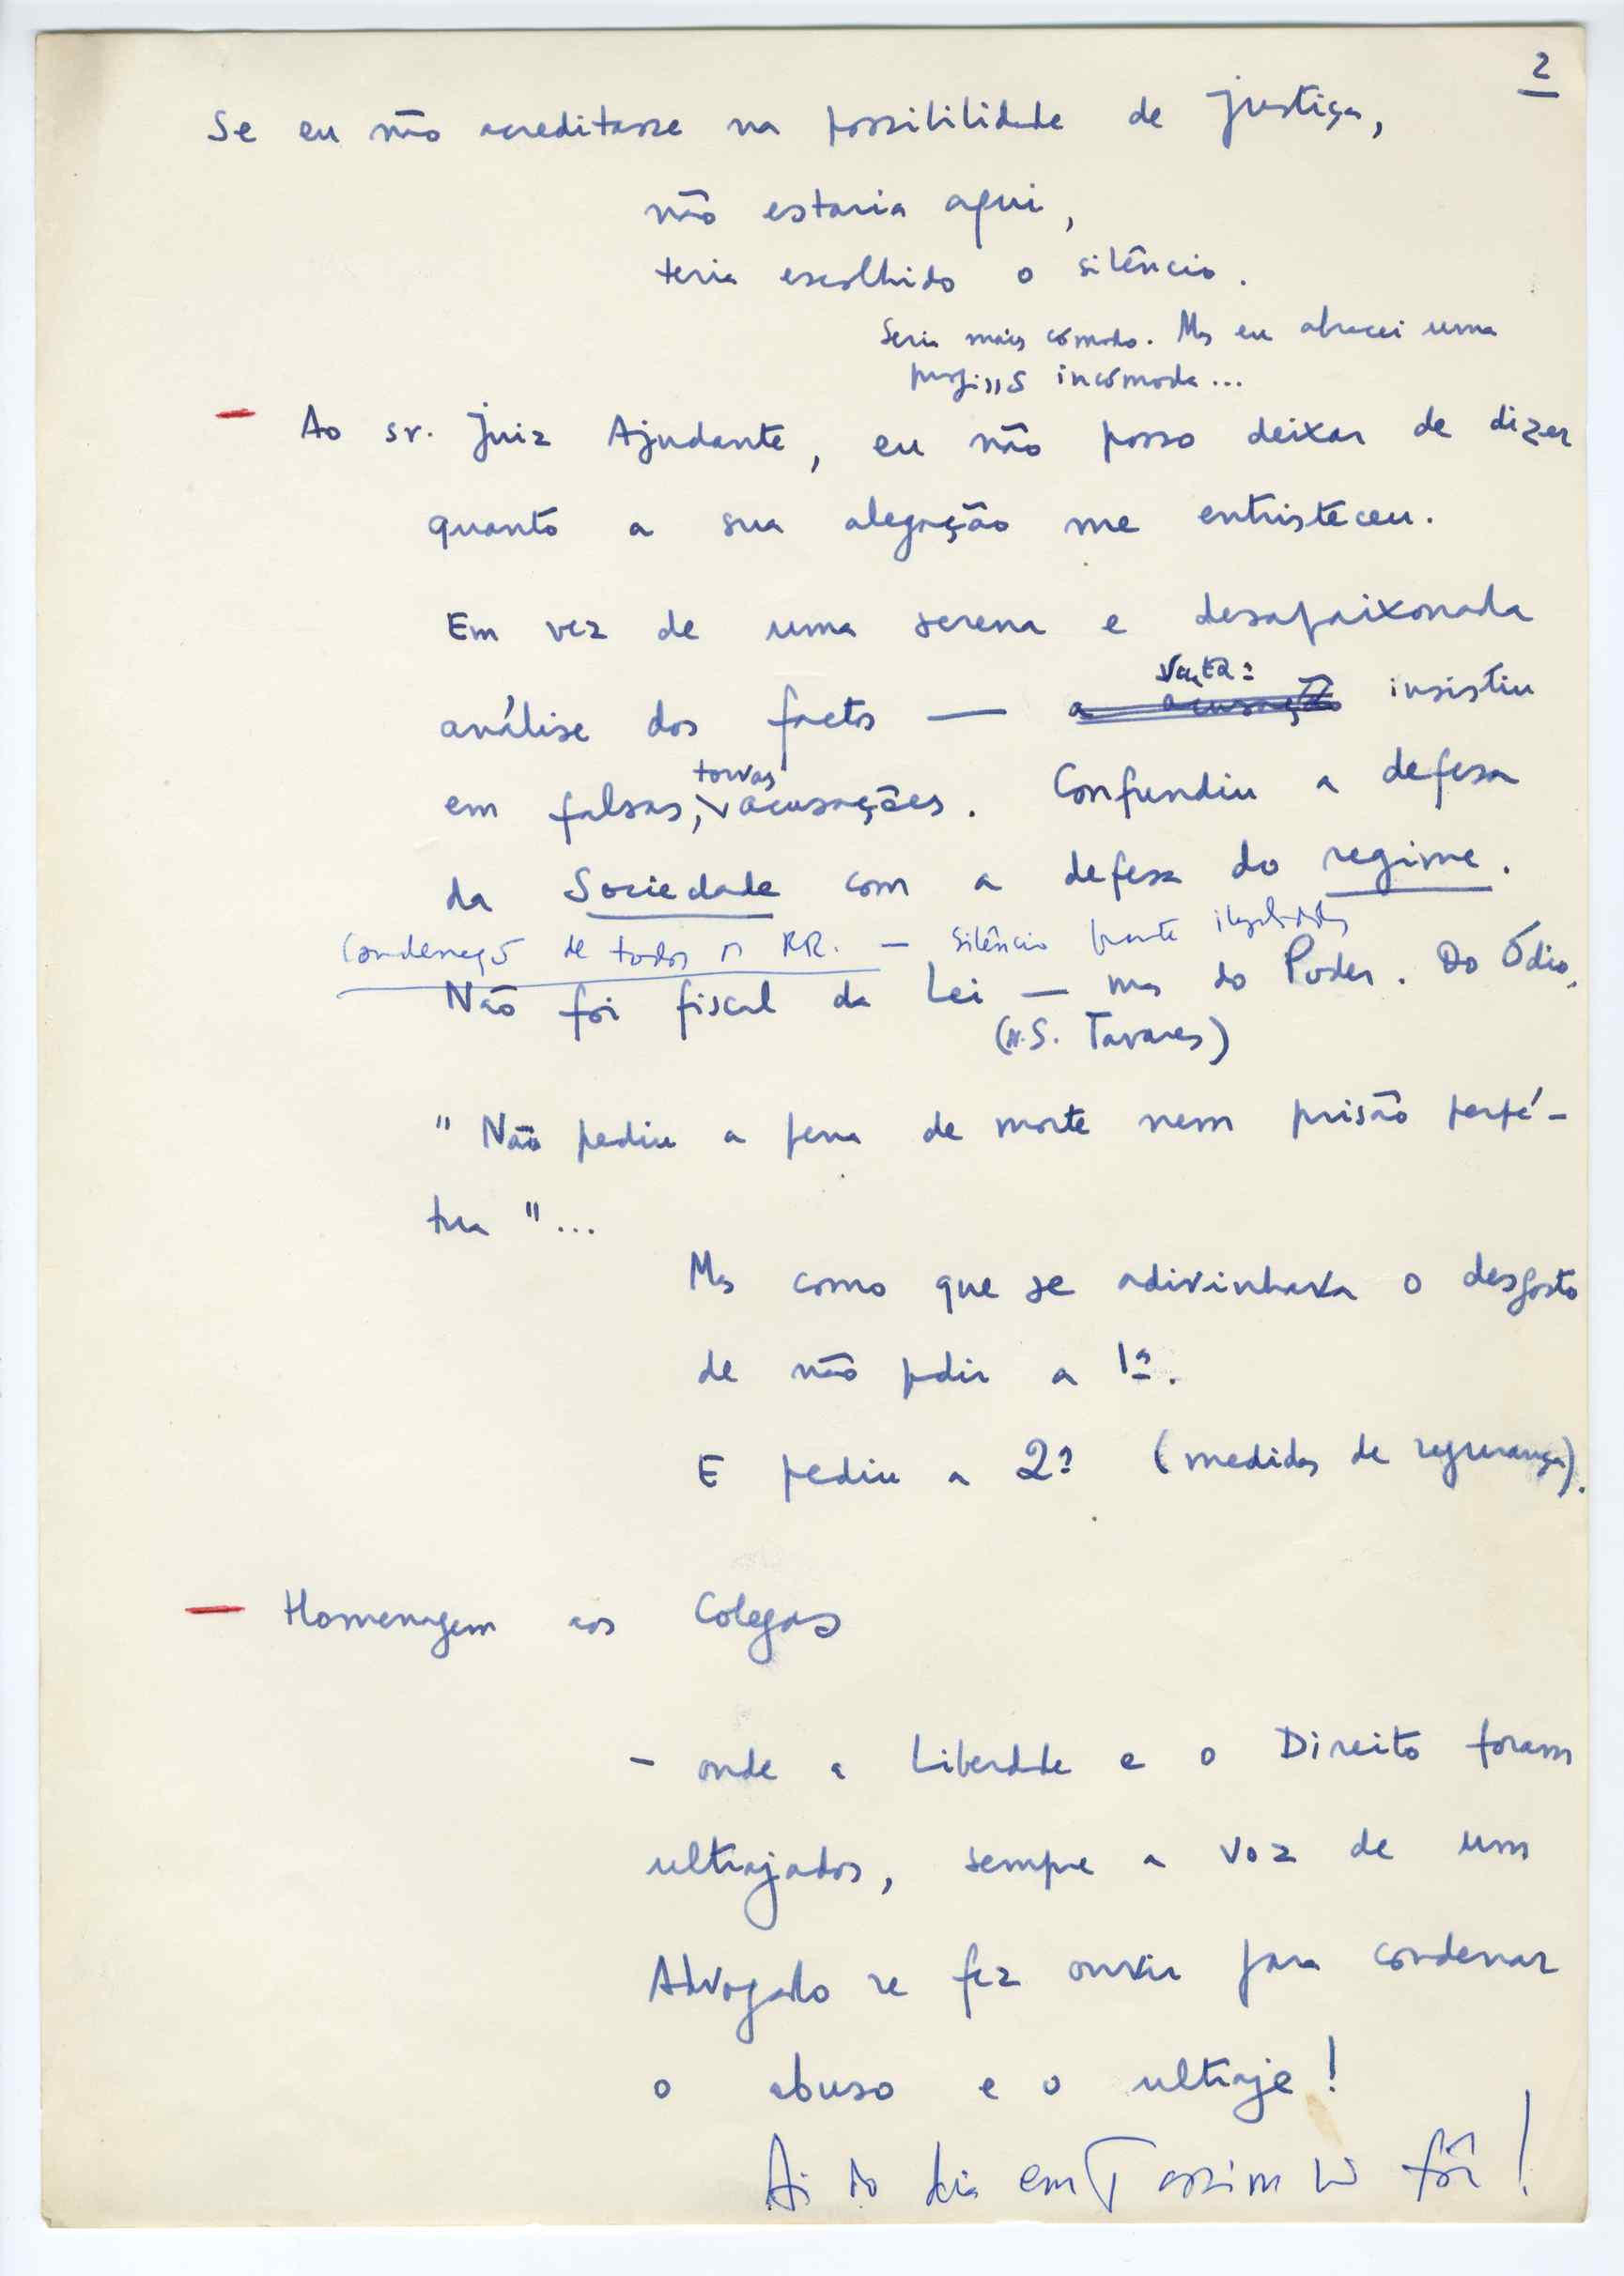 2
Se eu não acreditasse na possibilidade de justiça,
não estaria aqui,
teria escolhido o silêncio.
Seria mais cómodo. Mas eu abracei uma
profissão incómoda...
— Ao sr. Juiz Ajudante, eu não posso deixar de dizer
quanto a sua alegação me entristeceu.
Em vez de uma serena e desapaixonada
análise dos factos — a acusação insistiu
em falsas, torvas acusações. Confundiu a defesa
da Sociedade com a defesa do regime.
Condenação de todos os RR. — Silêncio frente ilegalidades
Não foi fiscal da Lei — mas do Poder. Do Ódio.
(N.S. Tavares)
"Não pediu a pena de morte nem prisão perpé-
tua"...
Mas como que se adivinhava o desgosto
de não pedir a 1ª.
E pediu a 2ª (medidas de segurança).
— Homenagem aos Colegas
- onde a Liberdade e o Direito foram
ultrajados, sempre a voz de um
Advogado se fez ouvir para condenar
o abuso e o ultraje!
Ai do dia em q assim não fôr!